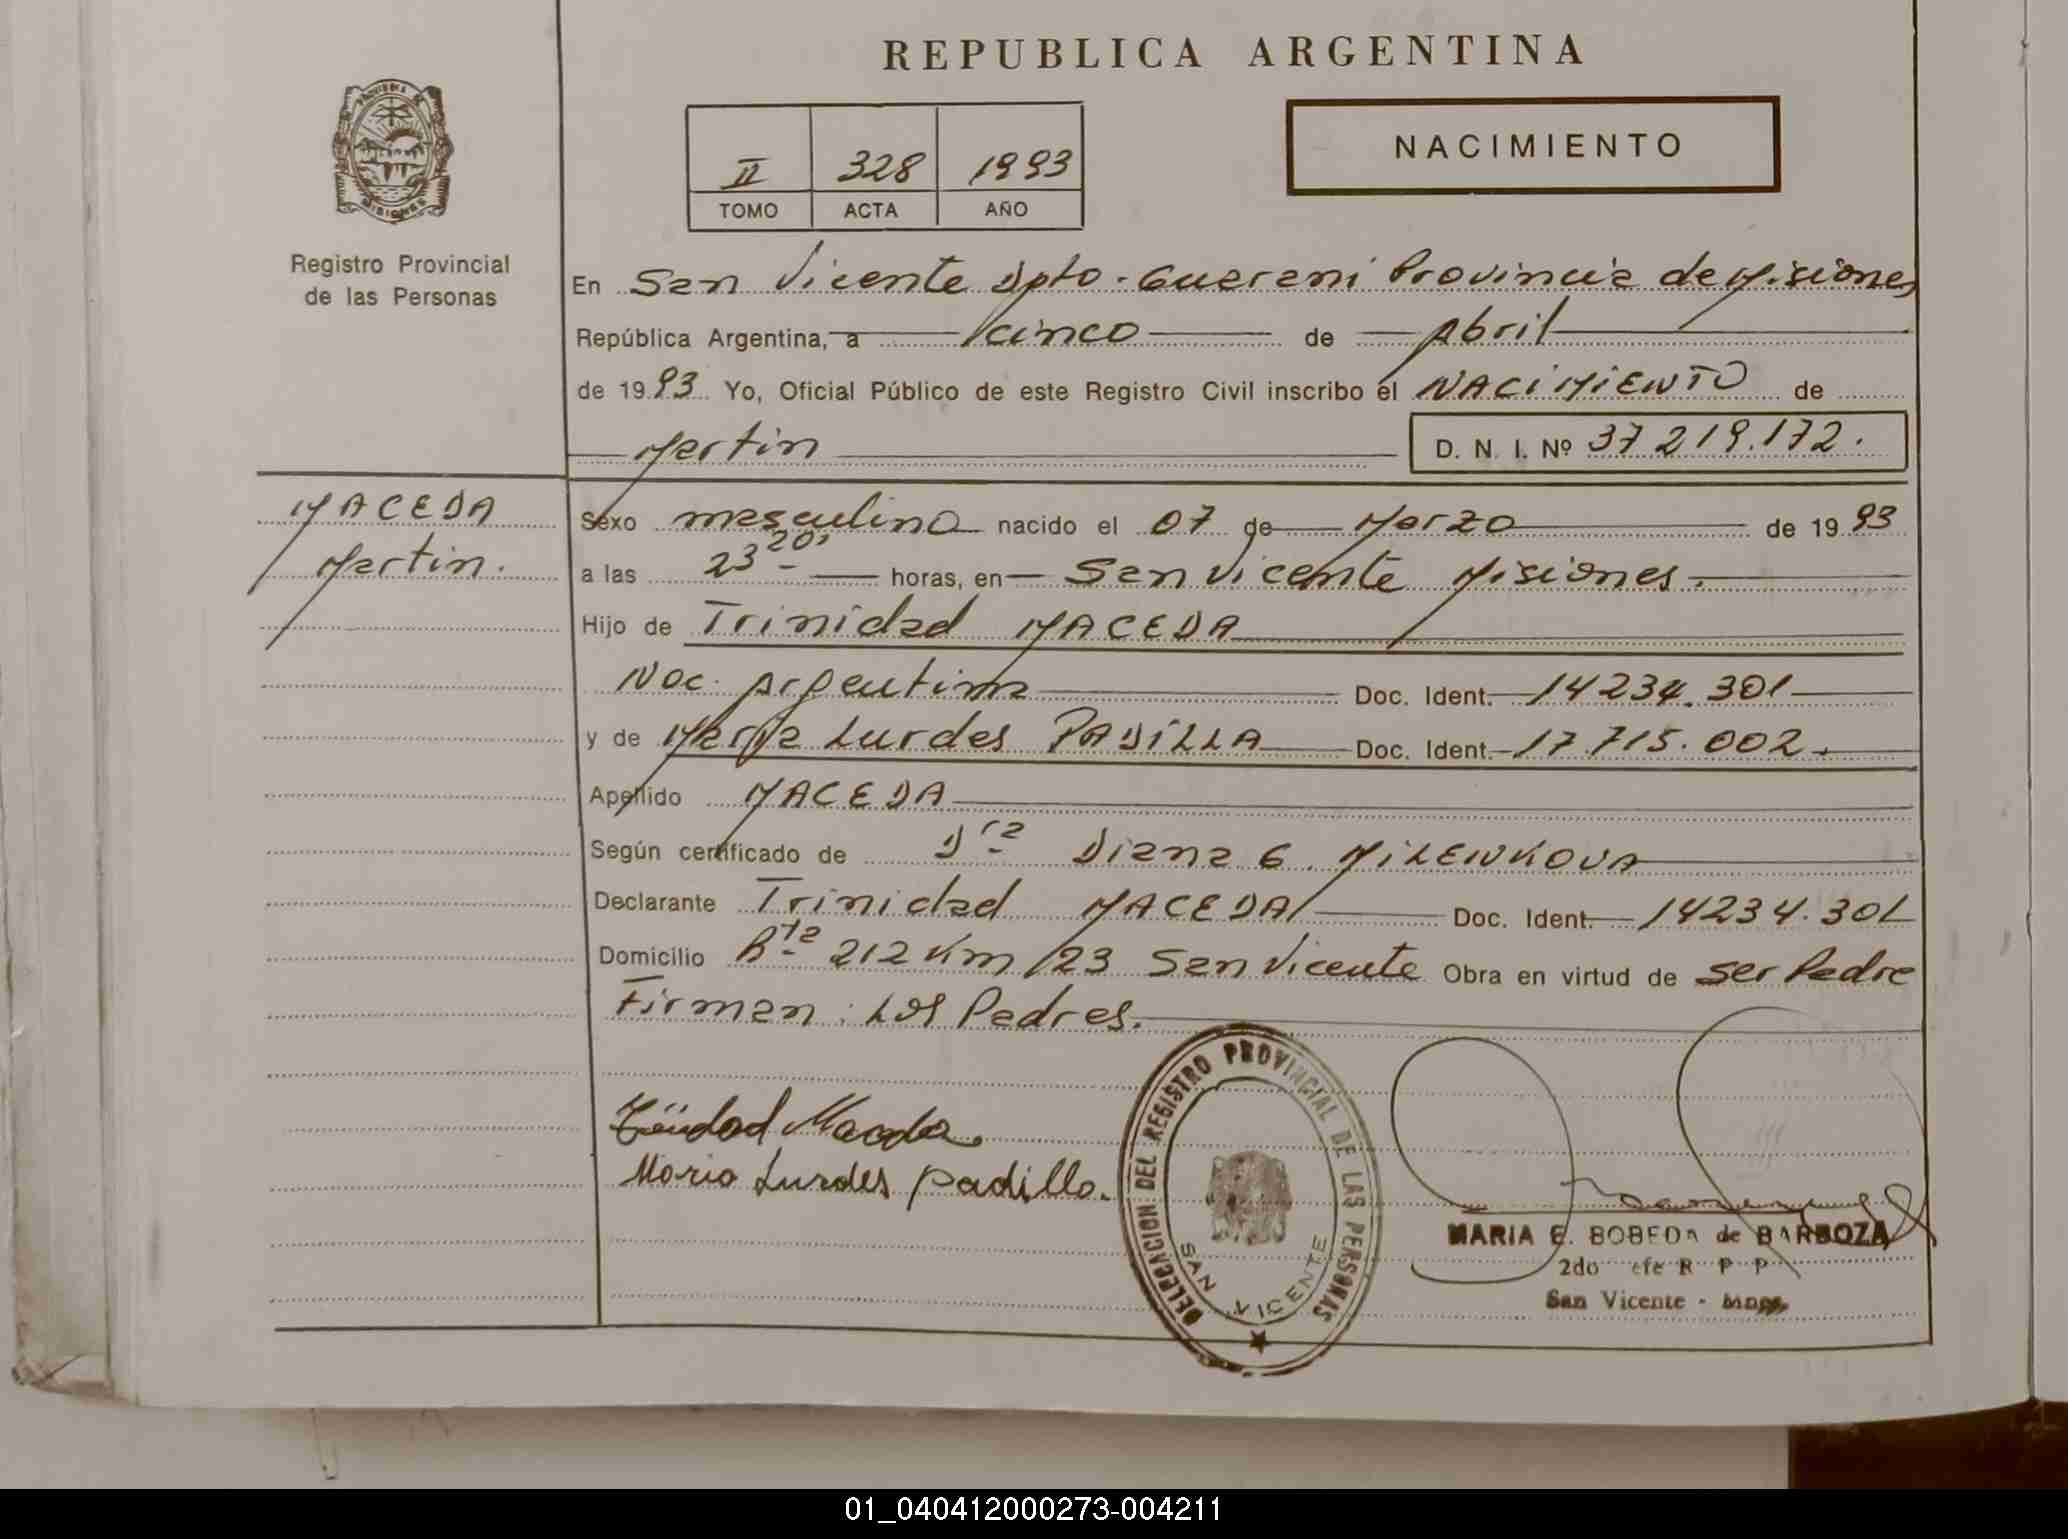 REPUBLICA ARGENTINA
PROVINCIA DE MISIONES
Registro Provincial
de las Personas
II 328 1993
TOMO ACTA AÑO
NACIMIENTO
En San Vicente Dpto. Guarani Provincia de Misiones
República Argentina, a cinco de Abril
de 1993 Yo, Oficial Público de este Registro Civil inscribo el NACIMIENTO de
Martin
D. N. I. Nº 37 219.172.
MACEDA
Martin.
Sexo masculino nacido el 07 de Marzo de 1993
a las 23 20, horas, en San Vicente Misiones.
Hijo de Trinidad MACEDA
Nac. Argentina Doc. Ident. 14234.301
y de Maria Lurdes PADILLA Doc. Ident. 17.715.002.
Apellido MACEDA
Según certificado de Dra Diana G. MILENKOVA
Declarante Trinidad MACEDA Doc. Ident. 14234.301
Domicilio Rta 212 Km 123 San Vicente Obra en virtud de ser Padre
Firman: Los Padres.
Trinidad Maceda
Maria Lurdes Padilla.
DELEGACION DEL REGISTRO PROVINCIAL DE LAS PERSONAS
SAN VICENTE
MARIA E. BOBEDA de BARBOZA
2do efe R P P
San Vicente - Mnes.
01_040412000273-004211